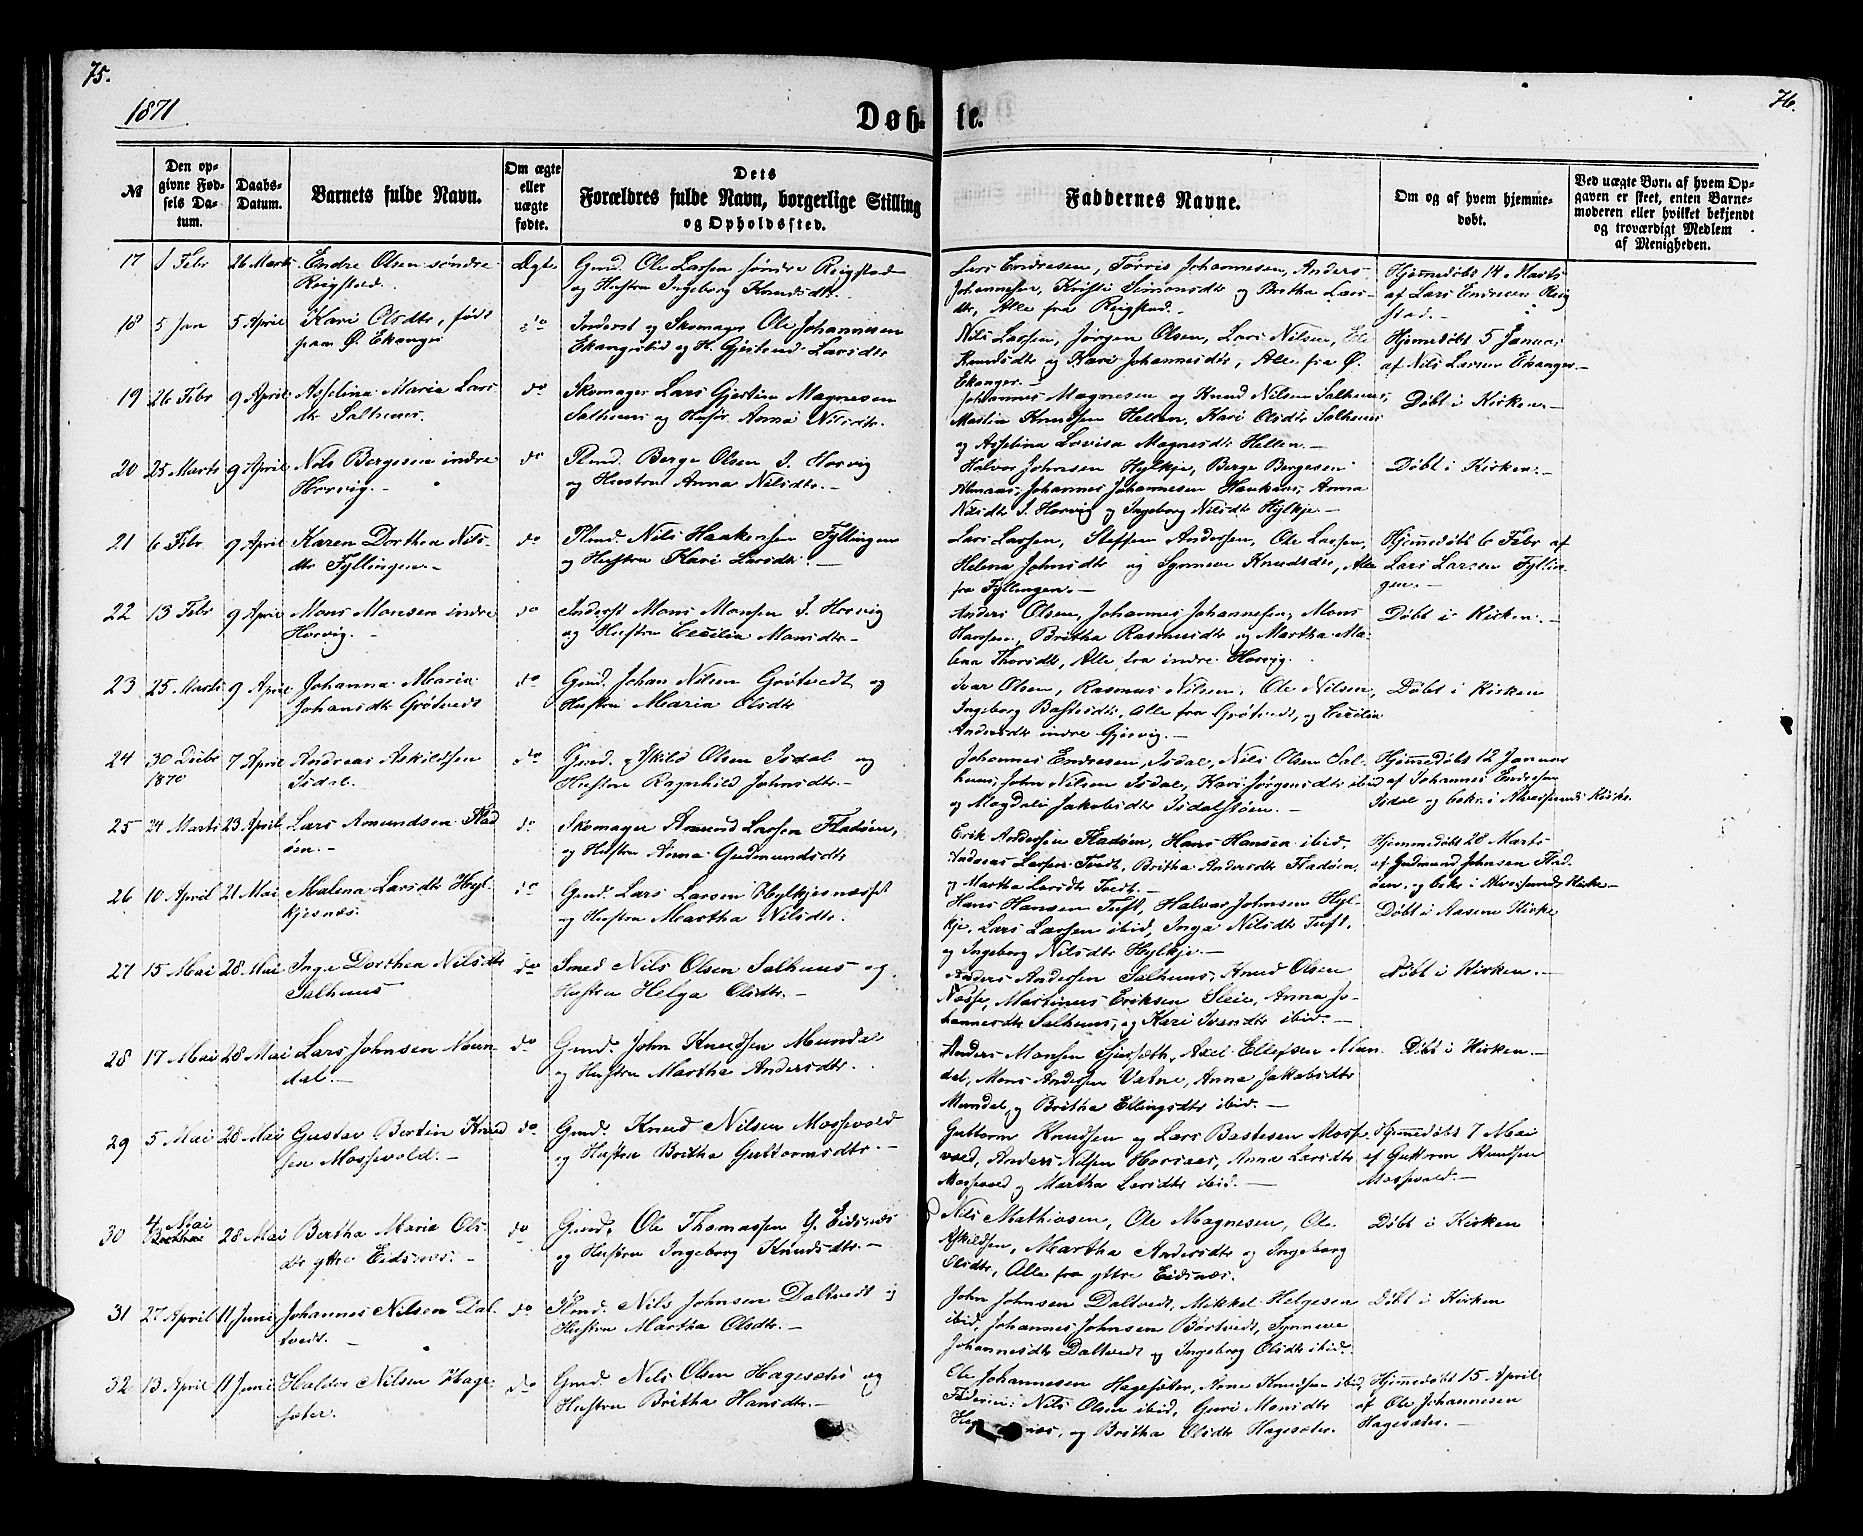 75.
76.
1871
Døb- te.
№
Den op-
givne Fød-
sels Da-
tum.
Daabs-
Datum.
Barnets fulde Navn.
Om ægte
eller
uægte
fødte.
Dets
Forældres fulde Navn, borgerlige Stilling
og Opholdssted.
Faddernes Navne.
Om og af hvem hjemme-
døbt.
Ved uægte Børn af hvem Op-
gaven er skeet, enten Barne-
moderen eller hvilket bekjendt
og troværdigt Medlem
af Menigheden.
17 1 Febr 26 Marts Endre Olsen søndre
Reigstad.
Ægte
Gmd. Ole Larsen søndre Reigstad
og Hustru Ingeborg Knudsdtr.
Lars Endresen, Torris Johannesen, Anders
Johannesen, Kristi Simonsdtr og Britha Lars-
dtr, Alle fra Reigstad.
Hjemmedøbt 14 Marts
af Lars Endresen Reig
stad.
18 5 Jan 5 April Kari Olsdtr, født
paa Ø. Ekanger
do
Inderst og Skomager Ole Johannesen
Ekangerlid og H. Gjertrud Larsdtr
Nils Larsen, Jørgen Olsen, Lars Nilsen,
Knudsdtr og Kari Johannesdtr, Alle fra Ø.
Ekanger.
Hjemmedøbt 5 Januar
af Nils Larsen Ekanger.
19 26 Febr 9 April Asseline Maria Lars
dtr Salhuus.
do
Skomager Lars Gjertin Magnesen
Salhuus og Hustr. Anna Nilsdtr.
Johannes Magnesen og Knud Nilsen Salhuus,
Martin Knudsen Hellen, Kari Olsdtr Salhuus
og Asselina Lovisa Magnesdtr Hellen.
Døbt i Kirken.
20 25 Marts 9 April Nils Bergesen indre
Horvig.
do
Plmd. Berge Olsen I. Horvig
og Hustru Anna Nilsdtr.
Halvor Johnsen Hylkje, Berge Bergesen
Almaas, Johannes Johannesen Haukaas, Anna
Nilsdtr I. Horvig og Ingeborg Nilsdtr Hylkje.
Døbt i Kirken.
21 6 Febr 9 April Karen Dorthea Nils-
dtr Fyllingen.
do
Plmd. Nils Haakensen Fyllingen
og Hustru Kari Larsdtr.
Lars Larsen, Steffen Andersen, Ole Larsen,
Helena Johnsdtr og Synneve Knudsdtr, Alle
fra Fyllingen.
Hjemmedøbt 6 Febr af
Lars Larsen Fyllin-
gen.
22 13 Febr 9 April Mons Monsen indre
Horvig.
do
Inderst Mons Monsen I. Horvig
og Hustru Cecilia Monsdtr.
Anders Olsen, Johannes Johannesen, Mons
Hansen, Britha Rasmusdtr og Martha Ma-
lena Thorsdtr, Alle fra indre Horvig.
Døbt i Kirken.
23 25 Marts 9 April Johanna Maria
Johansdtr Grøtvedt
do
Gmd. Johan Nilsen Grøtvedt og
Hustru Maria Olsdtr
Ivar Olsen, Rasmus Nilsen, Ole Nilsen,
Ingeborg Bastesdtr, Alle fra Grøtvedt, og Cecilia
Andersdtr indre Gjervig.
Døbt i Kirken
24 30 Decbr
1870
7 April Andreas Askildsen
Isdal.
do
Gmd. Askild Olsen Isdal og
Hustru Ragnhild Johnsdtr.
Johannes Endresen, Isdal, Nils Olsen Sal-
huus, John Nilsen Isdal, Kari Jørgensdtr ibid
og Magdeli Jakobsdtr Isdalstøen.
Hjemmedøbt 12 Januar
af Johannes Endresen
Isdal og bekr. i Alversunds Kirke.
25 24 Marts 23 April Lars Amundsen Flad
øen.
do
Skomager Amund Larsen Fladøen,
og Hustru Anna Gudmundsdtr
Erik Andersen Fladøen, Hans Hansen ibid.
Andreas Larsen Tvedt, Britha Andersdtr Fladøen,
og Martha Larsdtr Tvedt.
Hjemmedøbt 28 Marts
af Gudmund Johnsen Flad
øen, og bekr i Alversunds Kirke
26 10 April 21 Mai Malena Larsdtr Hyl-
kjesnæs.
do
Gmd. Lars Larsen Hylkjesnæsset
og Hustru Martha Nilsdtr.
Hans Hansen Tuft, Halvor Johnsen Hyl-
kje, Lars Larsen ibid, Inga Nilsdtr Tuft,
og Ingeborg Nilsdtr Hylkje.
Døbt i Aasene Kirke
27 15 Mai 28 Mai Inge Dorthea Nilsdtr
Salhuus
do
Smed Nils Olsen Salhuus og
Hustru Helga Olsdtr.
Anders Andersen Salhuus, Knud Olsen
Nosse, Martinus Eriksen Steie, Anna Jo-
hannesdtr Salhuus, og Kari Ivarsdtr ibid.
Døbt i Kirken.
28 17 Mai 28 Mai Lars Johnsen Mun-
dal.
do
Gmd. John Knudsen Mundal
og Hustru Martha Andersdtr.
Anders Monsen Sjursæth, Axel Ellefsen Mun
dal, Mons Andersen Vatne, Anna Jakobsdtr
Mundal og Britha Ellingsdtr ibid.
Døbt i Kirken.
29 5 Mai 28 Mai Gustav Bertin Knud
sen Mossevold.
do
Gmd. Knud Nilsen Mossevold
og Hustru Britha Guttormsdtr.
Guttorm Knudsen og Lars Bastesen Mosse
vold, Anders Nilsen Horsaas, Anna Larsdtr
Mossevold og Martha Larsdtr ibid.
Hjemmedøbt 7 Mai
af Guttorm Knudsen
Mossevold.
30 4 Mai
28 Mai Bertha Maria Ols-
dtr yttre Eidsnæs.
do
Gmd. Ole Thomassen Y. Eidsnæs
og Hustru Ingeborg Knudsdtr.
Nils Mathiasen, Ole Magnesen, Ole
Askildsen, Martha Andersdtr og Ingeborg
Olsdtr, Alle fra yttre Eidsnæs.
Døbt i Kirken
31 27 April 11 Juni Johannes Nilsen Dal-
tvedt.
do
Plmd. Nils Johnsen Daltvedt og
Hustru Martha Olsdtr.
John Johnsen Daltvedt, Mikkel Helgesen
ibid, Johannes Johnsen Børtvedt, Synneve
Johannesdtr Daltvedt og Ingeborg Olsdtr ibid.
Døbt i Kirken
32 13 April 11 Juni Haldor Nilsen Hage-
sæter.
do
Gmd. Nils Olsen Hagesæter og
Hustru Britha Hansdtr.
Ole Johannesen Hagesæter, Arne Knudsen ibid,
Faderen: Nils Olsen ibid, Guri Monsdtr
og Britha Olsdtr Hagesæter.
Hjemmedøbt 15 April
af Ole Johannesen
Hagesæter.